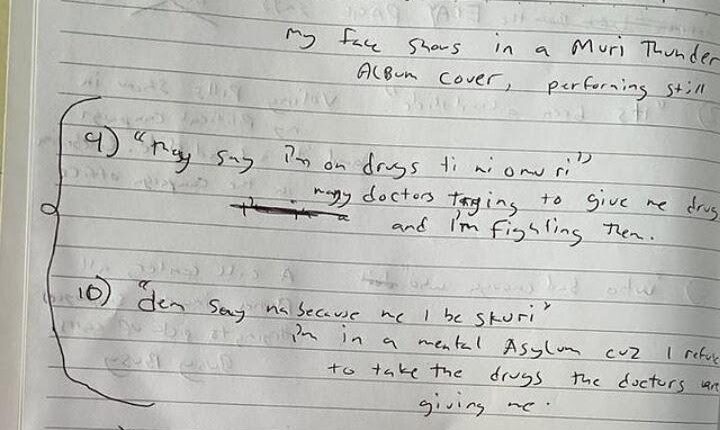 My face shows in a Muri Thunder
Album cover, performing still
9) "They say i'm on drugs ti ni omu ri"
many doctors trying to give me drug
and I'm fighting them.
10) "dem say na because me I be skuri"
i'm in a mental Asylum cuz I refuse
to take the drugs the doctors
giving me.